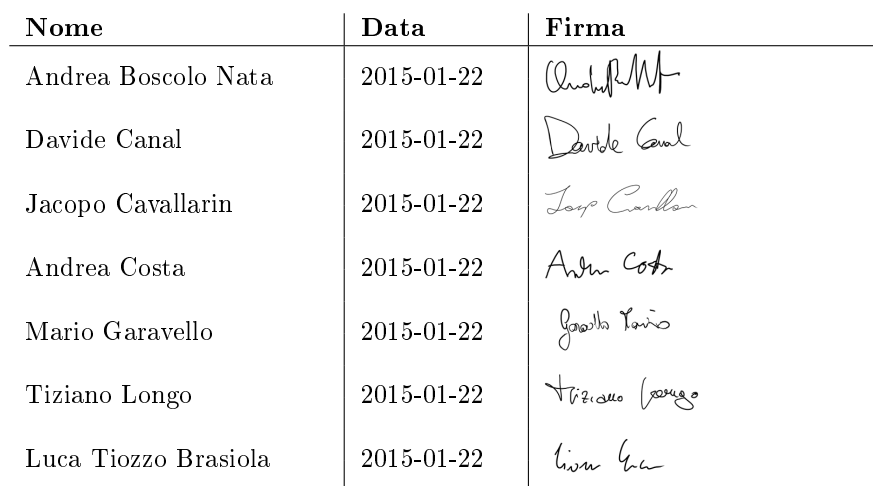 Nome Data Firma
Andrea Boscolo Nata 2015-01-22
Davide Canal 2015-01-22 Davide Canal
Jacopo Cavallarin 2015-01-22
Andrea Costa 2015-01-22 Costa
Mario Garavello 2015-01-22 Mario
Tiziano Longo 2015-01-22 Tiziano Longo
Luca Tiozzo Brasiola 2015-01-22